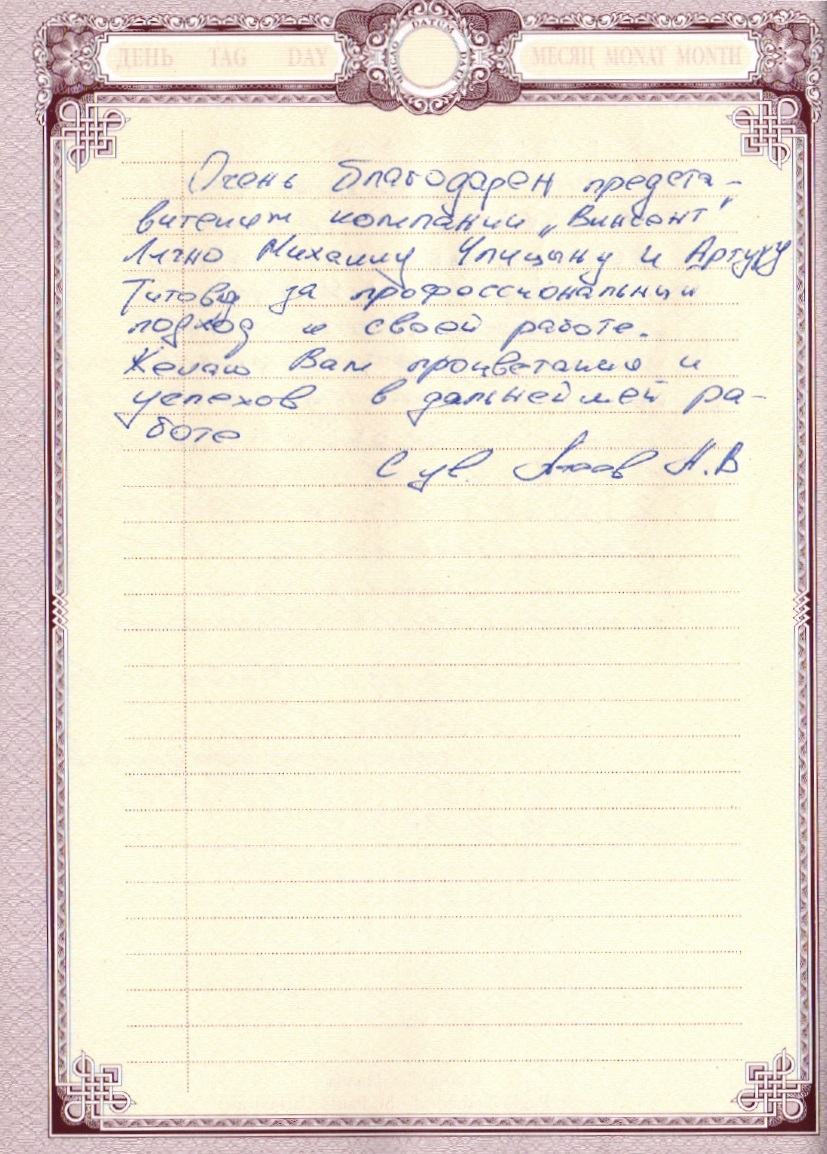 ДЕНЬ TAG DAY DATUM МЕСЯЦ MONAT MONTH
Очень благодарен предста-
вителям компании „Винсент"
Лично Михаилу Упицыну и Артуру
Титову за профессиональный
подход к своей работе.
Желаю Вам процветания и
успехов в дальнейшей ра-
боте
С ув. А.В